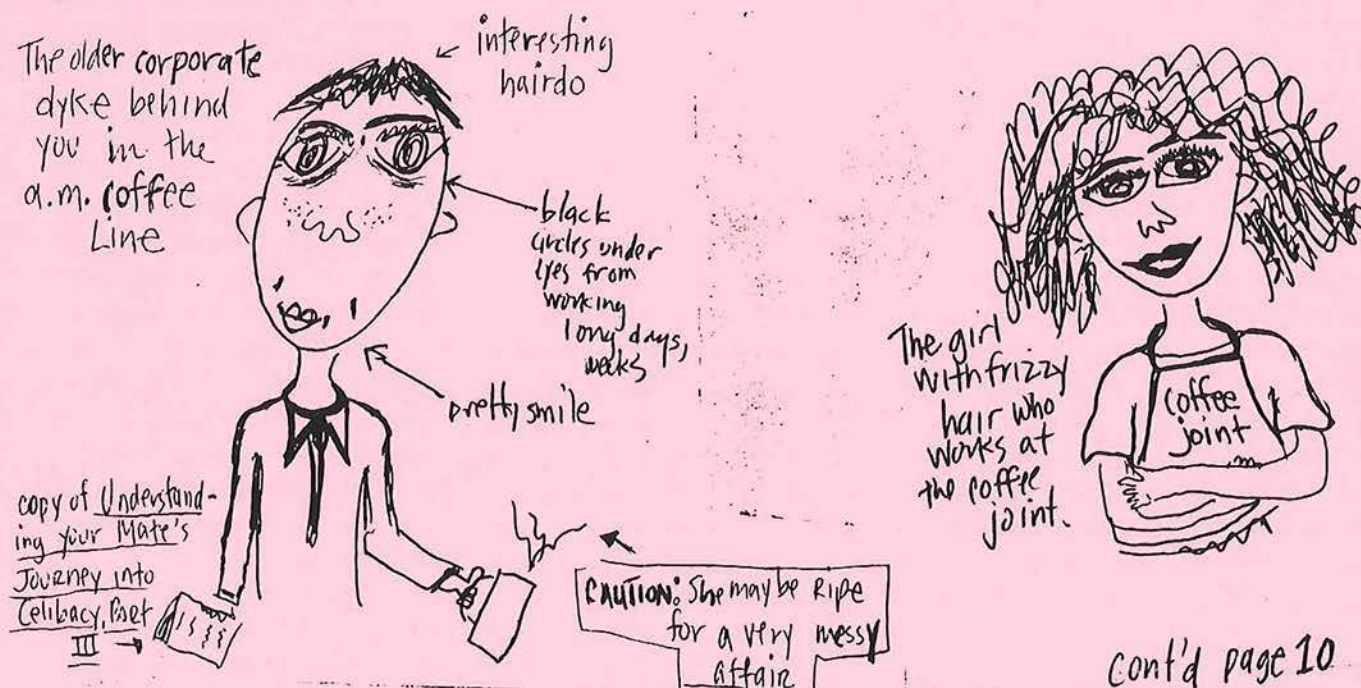 The older corporate
dyke behind
you in the
a.m. coffee
Line
interesting
hairdo
black
circles under
eyes from
working
long days,
weeks
pretty smile
copy of Understand-
ing your Mate's
Journey into
Celibacy, Part
III
CAUTION: She may be Ripe
for a very messy
affair
The girl
with frizzy
hair who
works at
the coffee
joint.
coffee
joint
cont'd page 10